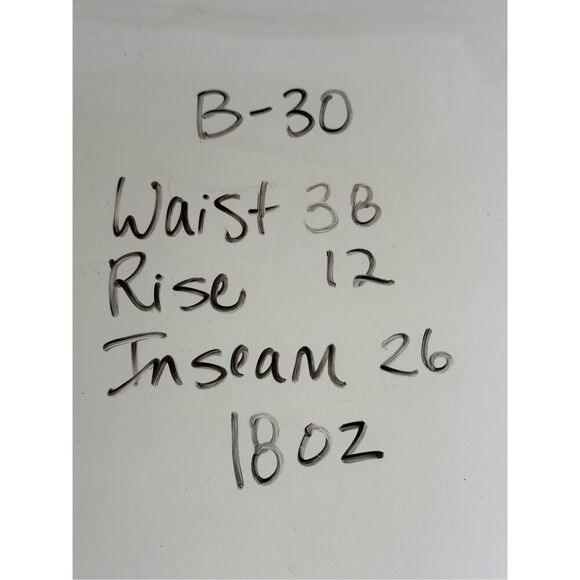 B-30
Waist 38
Rise 12
Inseam 26
18oz